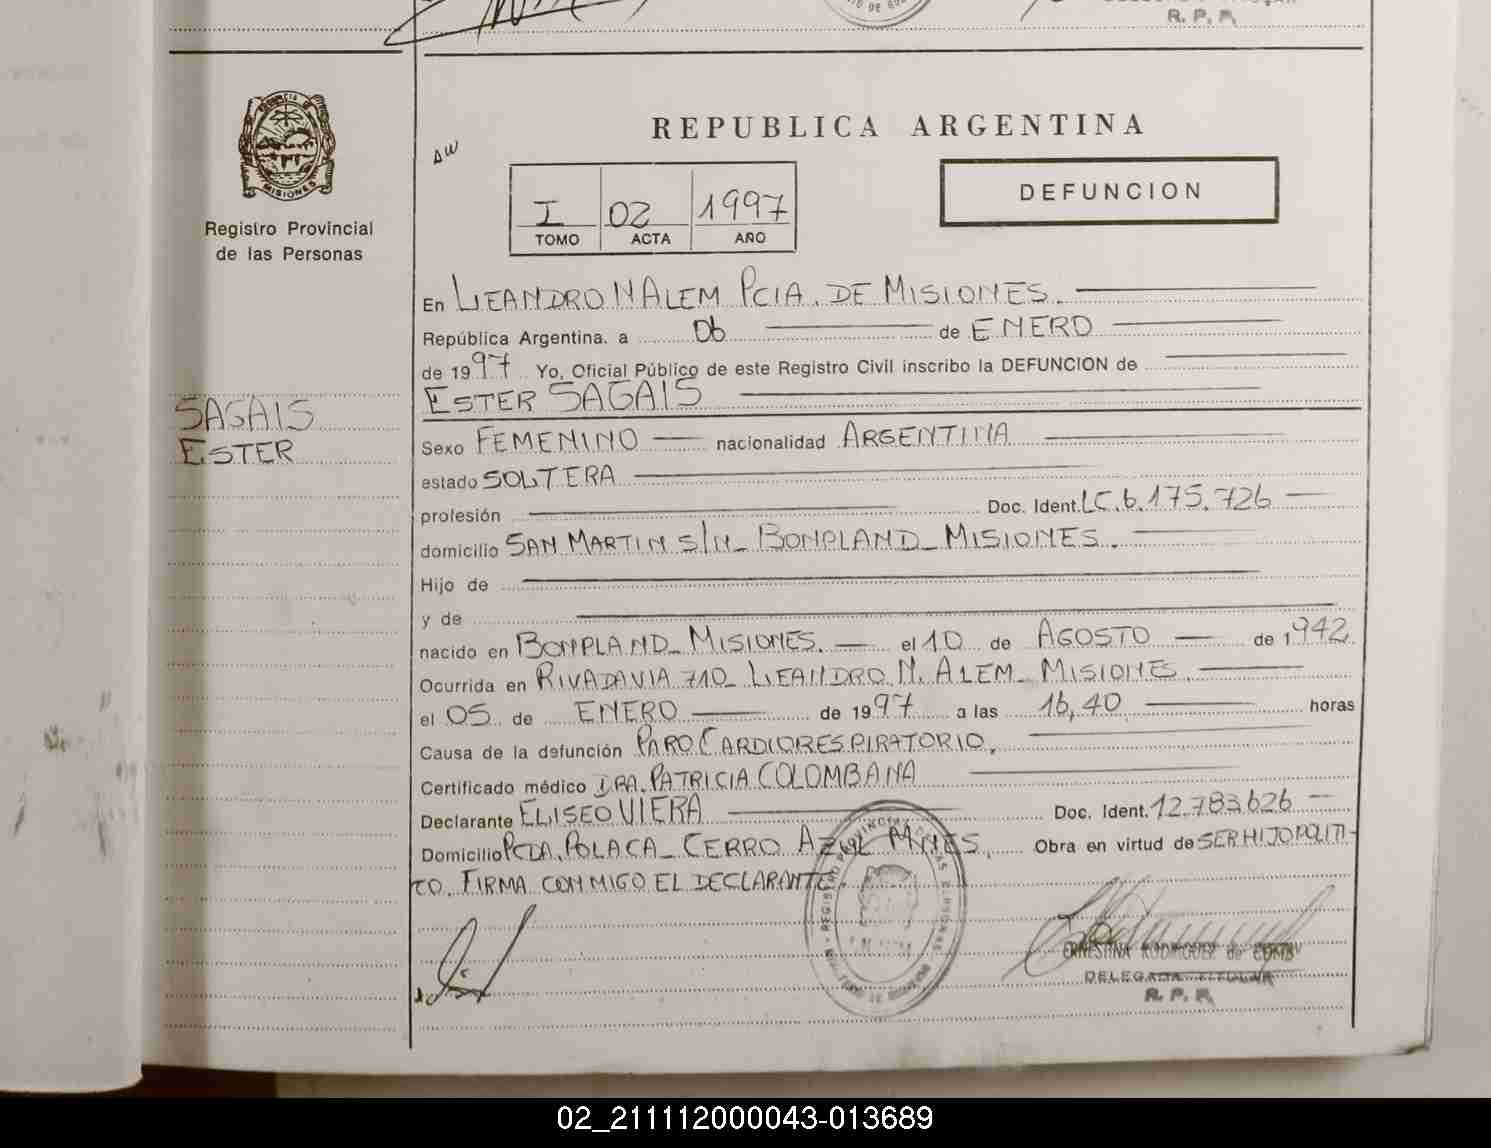 R. P. P.
PROVINCIA DE
MISIONES
Registro Provincial
de las Personas
SAGAIS
ESTER
REPUBLICA ARGENTINA
DEFUNCION
I 02 1997
TOMO ACTA AÑO
En LEANDRO N ALEM PCIA. DE MISIONES.
República Argentina. a 06 de ENERO
de 1997 Yo, Oficial Público de este Registro Civil inscribo la DEFUNCION de
ESTER SAGAIS
Sexo FEMENINO nacionalidad ARGENTINA
estado SOLTERA
profesión Doc. Ident. LC. 6.175.726
domicilio SAN MARTIN S/N_ BONPLAND_ MISIONES.
Hijo de
y de
nacido en BONPLAND_ MISIONES. el 10 de AGOSTO de 1942
Ocurrida en RIVADAVIA 710_ LEANDRO N. ALEM_ MISIONES
el 05 de ENERO de 1997 a las 16,40 horas
Causa de la defunción PARO CARDIORESPIRATORIO.
Certificado médico DRA. PATRICIA COLOMBANA
Declarante ELISEO VIERA Doc. Ident. 12.783.626
Domicilio PCDA. POLACA_ CERRO AZUL MNES. Obra en virtud de SER HIJO POLITI-
CO. FIRMA CONMIGO EL DECLARANTE.
ERNESTINA RODRIGUEZ de
DELEGADA TITULAR
R. P. P.
02_211112000043-013689